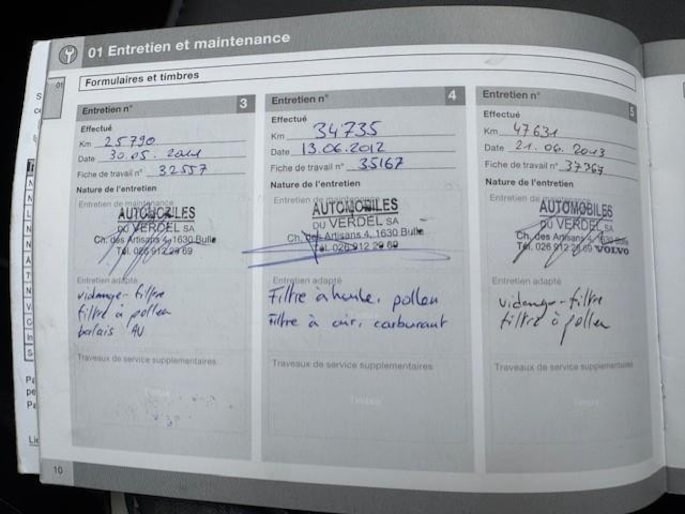 01 Entretien et maintenance
01
Formulaires et timbres
Entretien n° 3
Effectué
Km 25790
Date 30.05.2011
Fiche de travail n° 32557
Nature de l'entretien
Entretien de maintenance
AUTOMOBILES
DU VERDEL SA
Ch. des Artisans 4, 1630 Bulle
Tél. 026 912 29 69
Entretien adapté
vidange - filtre
filtre à pollen
balais AV
Traveaux de service supplementaires
Entretien n° 4
Effectué
Km 34735
Date 13.06.2012
Fiche de travail n° 35167
Nature de l'entretien
Entretien de maintenance
AUTOMOBILES
DU VERDEL SA
Ch. des Artisans 4, 1630 Bulle
Tél. 026 912 29 69
Entretien adapté
Filtre à huile, pollen
Filtre à air, carburant
Traveaux de service supplementaires
Entretien n° 5
Effectué
Km 47631
Date 21.06.2013
Fiche de travail n° 37367
Nature de l'entretien
Entretien de maintenance
AUTOMOBILES
DU VERDEL SA
Ch. des Artisans 4, 1630 Bulle
Tél. 026 912 29 69 VOLVO
Entretien adapté
vidange - filtre
filtre à pollen
Traveaux de service supplementaires
10